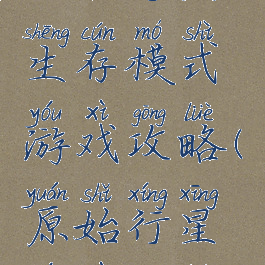 shēng cún mó shì
生存模式
yóu xì gōng lüè
游戏攻略(
yuán shǐ xíng xīng
原始行星